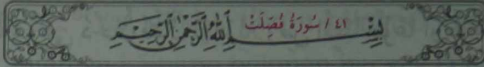 ٤١ / سُورَةُ فُصِّلَتْ بِسْمِ اللَّهِ الرَّحْمَٰنِ الرَّحِيمِ